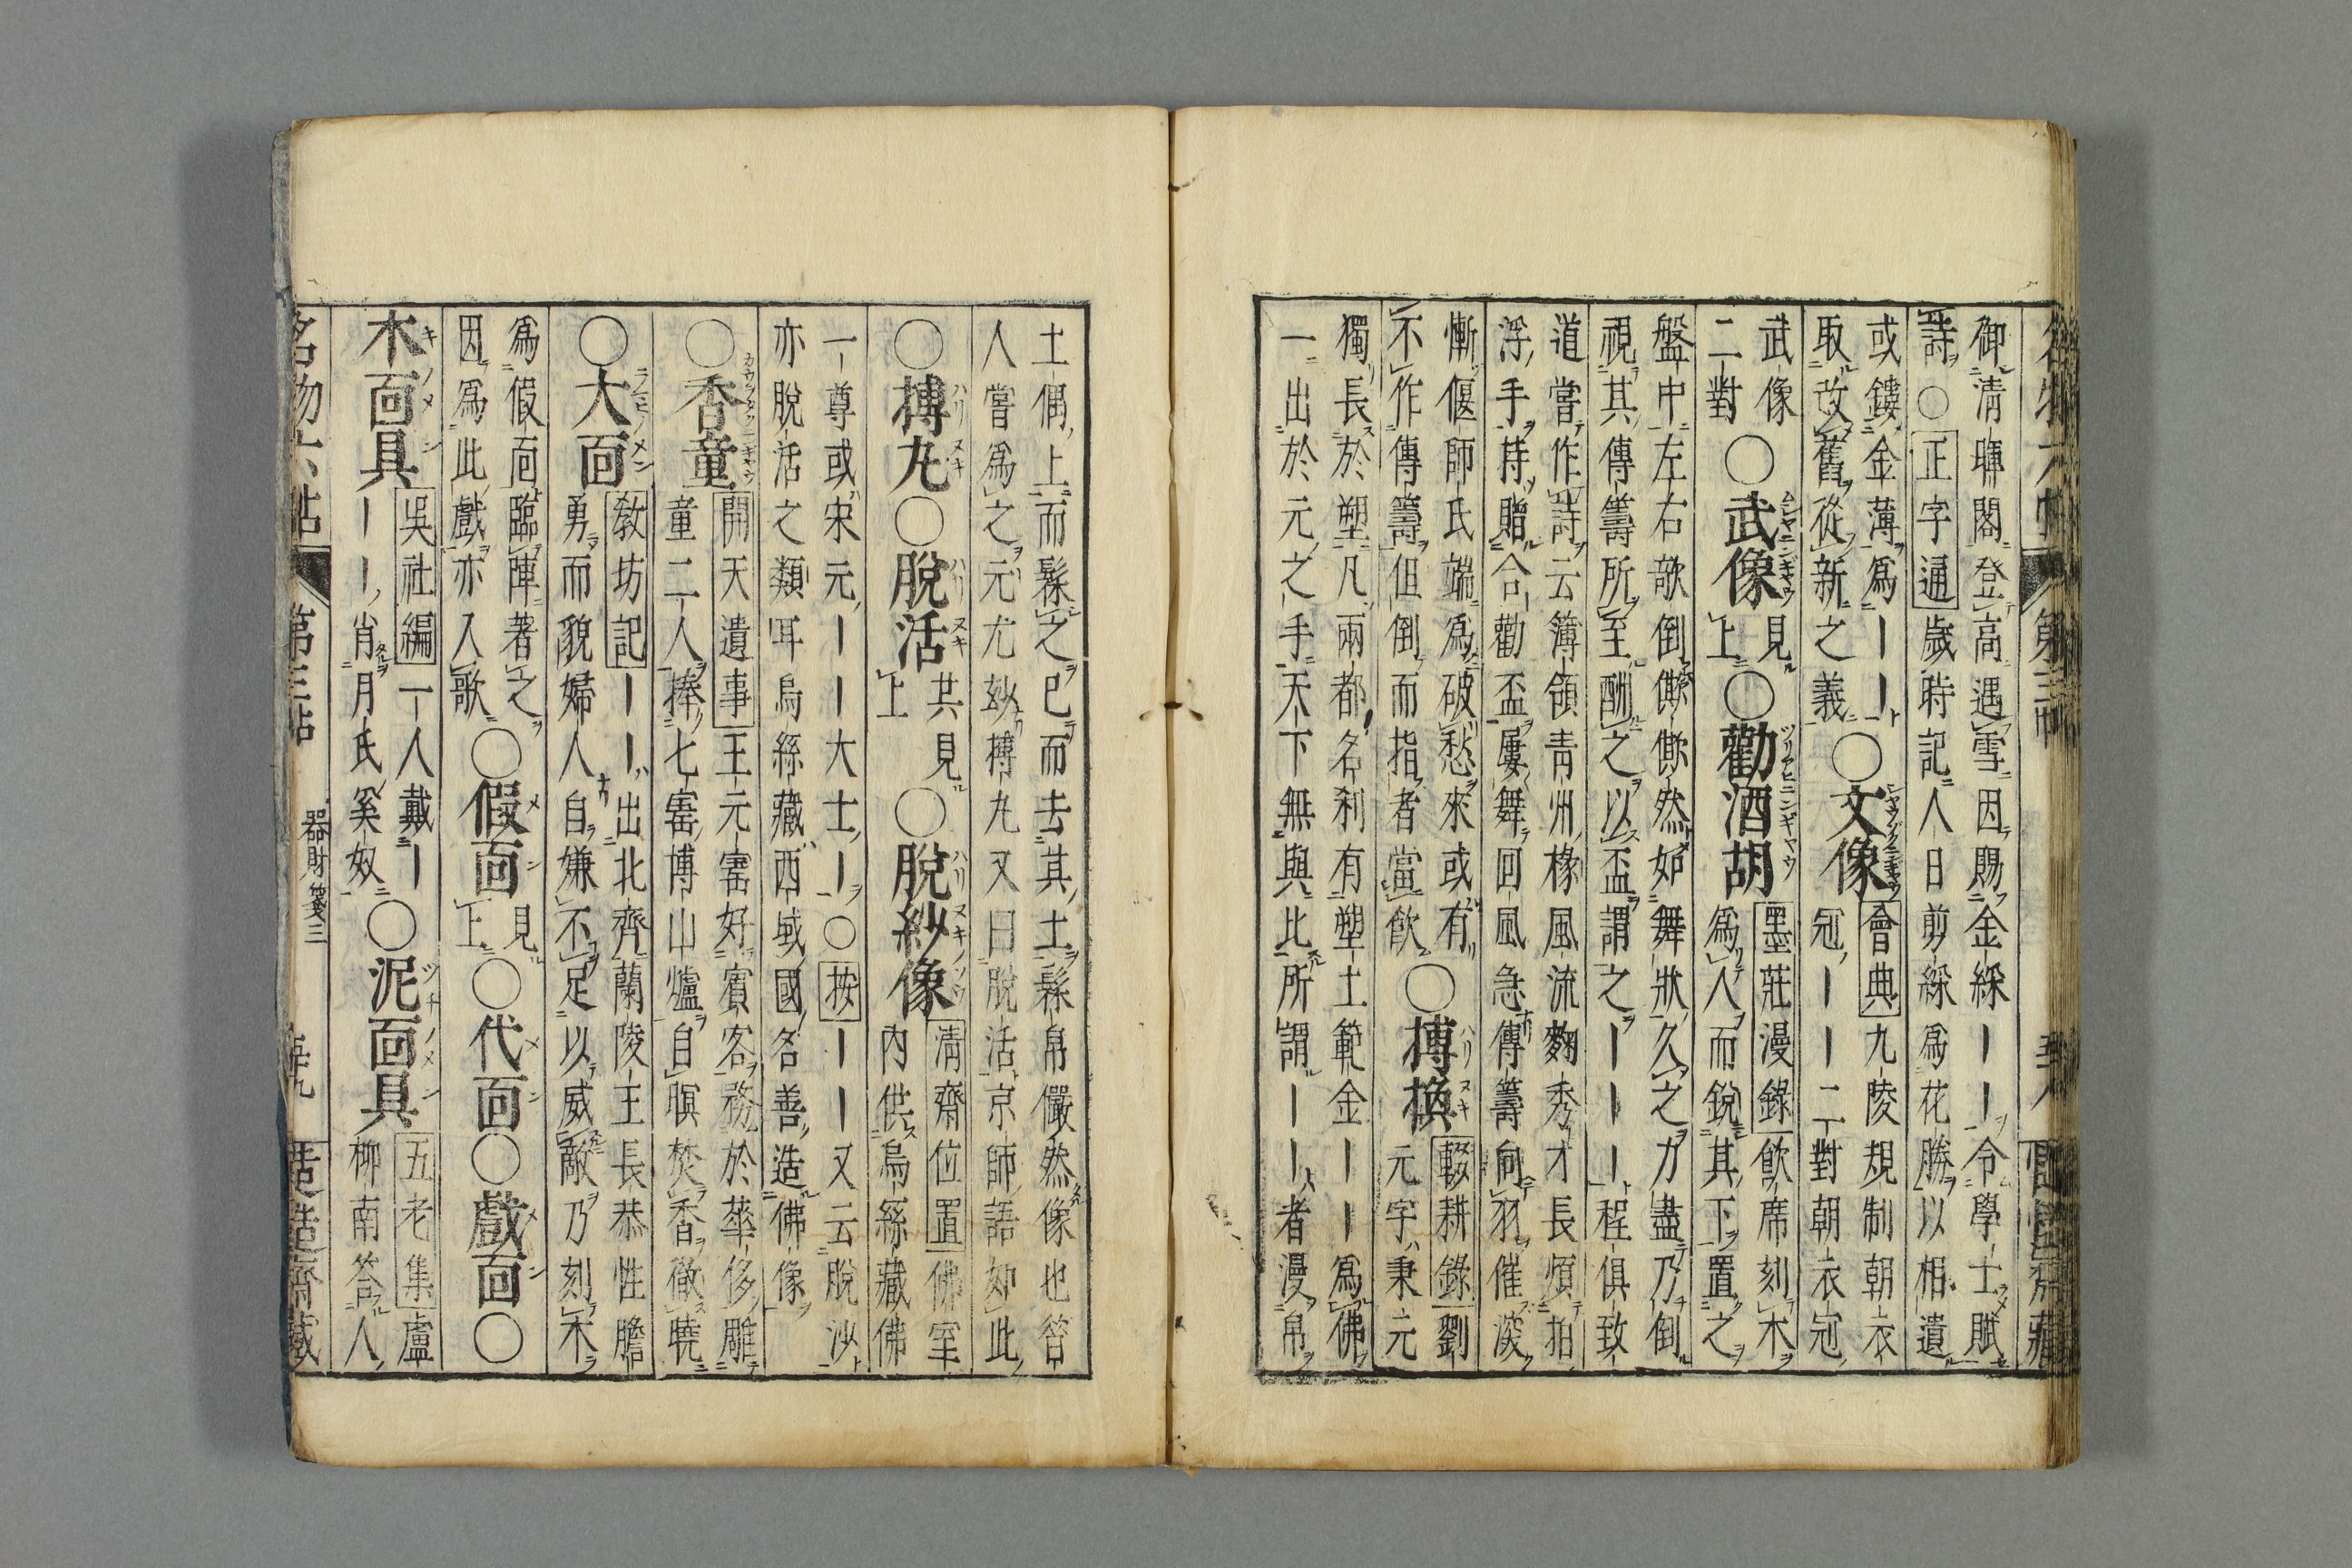 名物六帖 第三帖
御清暉閣登高遇雪因賜金綵｜｜令學士賦
詩○正字通歲時記人日剪綵為花勝以相遺
或鏤金薄爲｜｜○文像會典九陵規制朝衣
取改舊從新之義 冠｜｜二對朝衣冠
武像二對○武像見上○勸酒胡墨莊漫錄飲席刻木
爲人而銳其下置之
盤中左右欹倒僛僛然如舞狀久之力盡乃倒
視其傳籌所至酬之以盃謂之｜｜｜程俱致
道嘗作詩云簿領青州椽風流麴秀才長煩拍
浮手持贈合歡盃屢舞回風急傳籌向羽催深
慚偃師氏端爲破愁來或有
不作傳籌但倒而指者當飲○摶換輟耕錄劉
元字秉元
獨長於塑凡兩都名刹有塑土範金｜｜爲佛
一出於元之手天下無與比所謂｜｜者漫帛
土偶上而髹之已而去其土髹帛儼然像也昔
人嘗爲之元尤玅摶丸又曰脫活京師語如此
○摶丸○脫活共見上○脫紗像清齋位置佛室
內供烏絲藏佛
一尊或宋元｜｜大士｜○按｜｜又云脫沙
亦脫活之類耳烏絲藏西域國名善造佛像
○香童開天遺事王元寚好賓客務於華侈雕
童二人捧七寚博山爐自暝焚香徹曉
○大面教坊記｜｜出北齊蘭陵王長恭性膽
勇而貌婦人自嫌不足以威敵乃刻木
爲假面臨陣著之
因爲此戲亦入歌○假面見上○代面○戲面○
木面具吳社編一人戴｜
｜｜肖月氏奚奴○泥面具五老集盧
柳南答人
名物六帖 第三帖 器財箋三